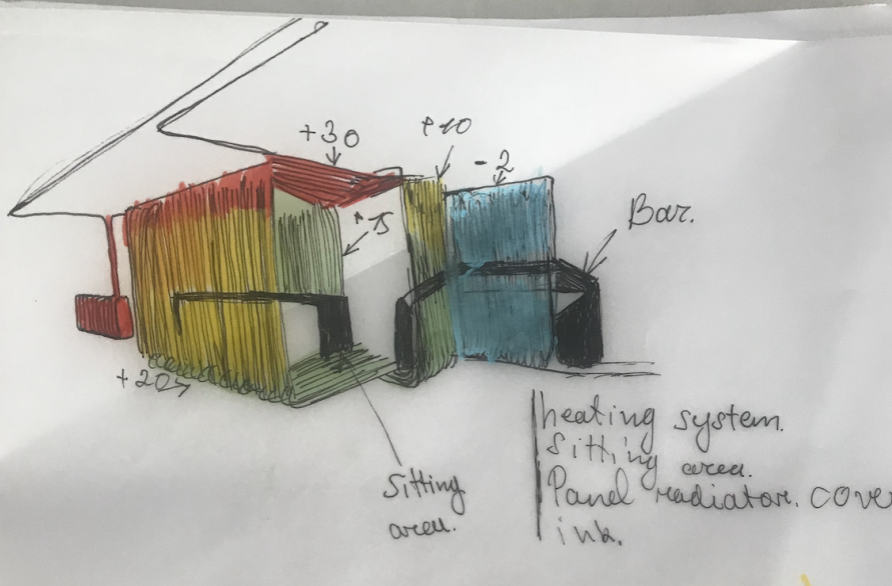 +30
+10
-2
+15
Bar.
+20
Sitting
area.
heating system.
Sitting area.
Panel radiator. cove
ink.